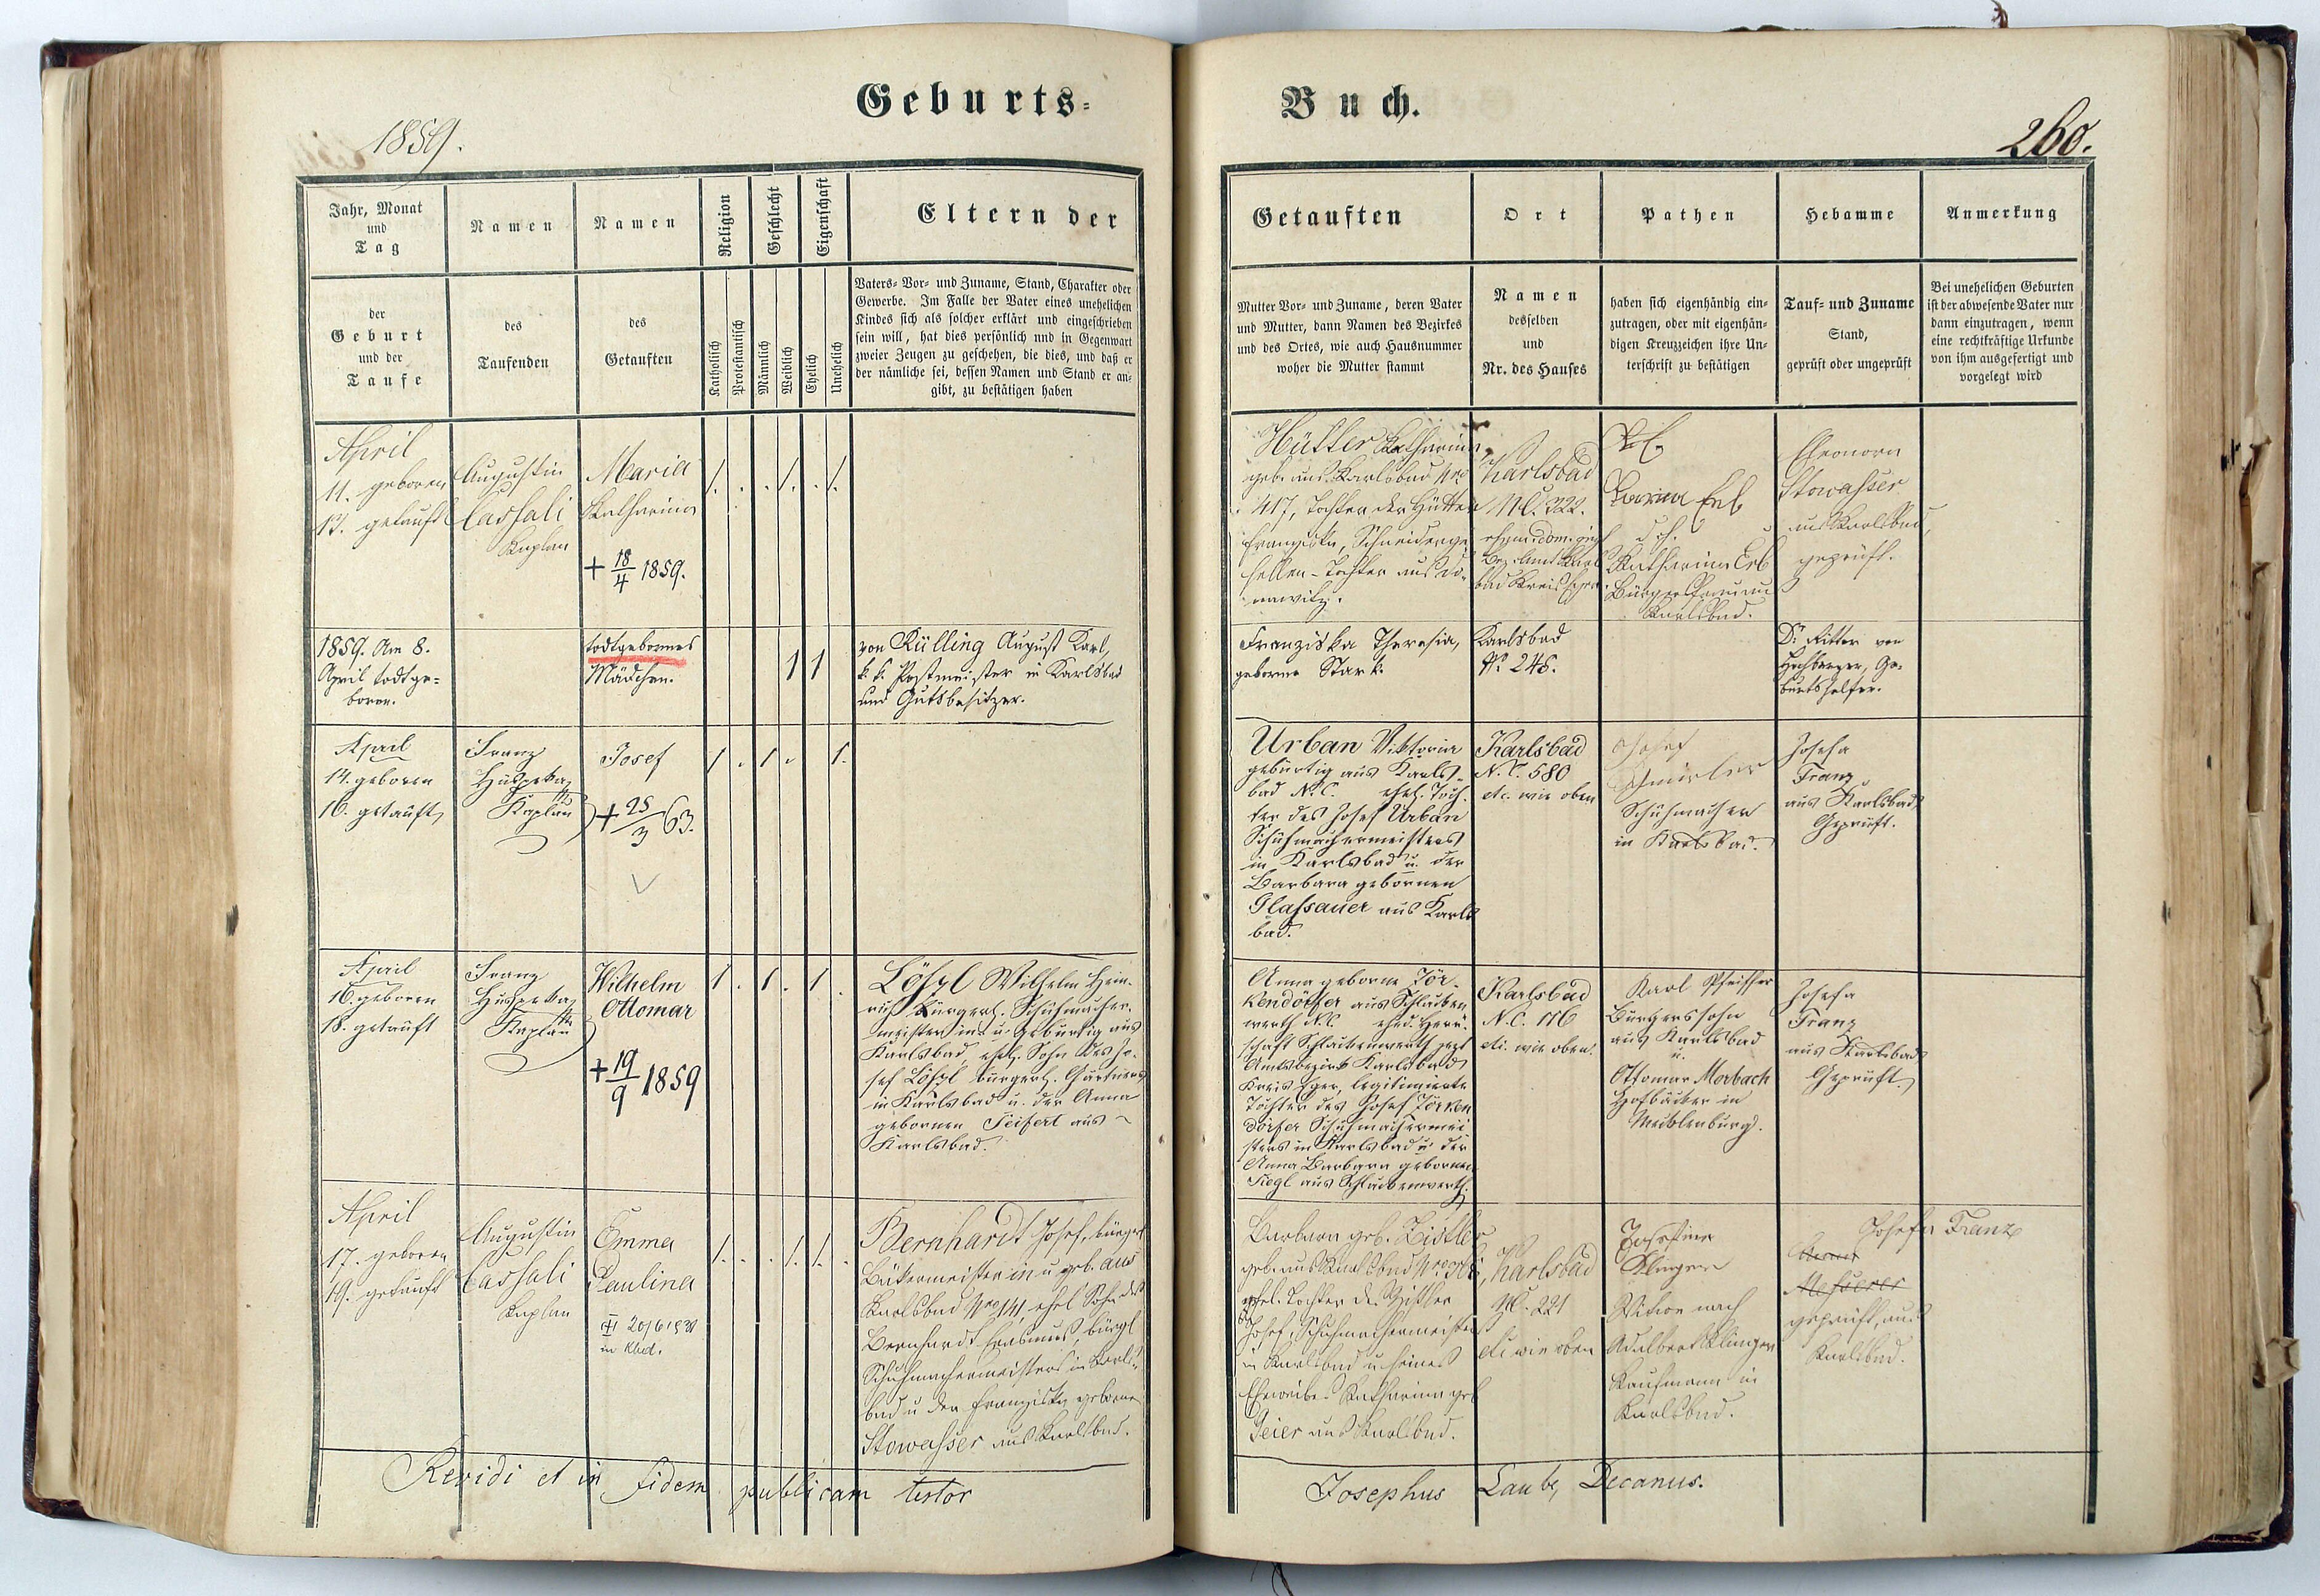 Geburts-
Buch.
1859.
260.
Jahr, Monat
und
Tag
Namen
Namen
Religion
Geschlecht
Eigenschaft
Eltern der
der
Geburt
und der
Taufe
des
Taufenden
des
Getauften
Katholisch
Protestantisch
Männlich
Weiblich
Ehelich
Unehelich
Vaters- Vor- und Zuname, Stand, Charakter oder
Gewerbe. Im Falle der Vater eines unehelichen
Kindes sich als solcher erklärt und eingeschrieben
sein will, hat dies persönlich und in Gegenwart
zweier Zeugen zu geschehen, die dies, und daß er
der nämliche sei, dessen Namen und Stand er an-
gibt, zu bestätigen haben
Getauften
Ort
Pathen
Hebamme
Anmerkung
Mutter Vor- und Zuname, deren Vater
und Mutter, dann Namen des Bezirkes
und des Ortes, wie auch Hausnummer
woher die Mutter stammt
Namen
desselben
und
Nr. des Hauses
haben sich eigenhändig ein-
zutragen, oder mit eigenhän-
digen Kreuzzeichen ihre Un-
terschrift zu bestätigen
Tauf- und Zuname
Stand,
geprüft oder ungeprüft
Bei unehelichen Geburten
ist der abwesende Vater nur
dann einzutragen, wenn
eine rechtkräftige Urkunde
von ihm ausgefertigt und
vorgelegt wird
April
11. geboren
13. getauft
Augustin
Cassali
Kaplan
Maria
Katharina
+ 18/4 1859.
Hütter Katharina
geb. aus Karlsbad Nro
417, Tochter der Hütter
Franziska, Schneiderge-
sellen-Tochter aus Do-
nawitz.
Karlsbad
N.C. 322.
Katharina Erb
Karlsbad.
Eleonora
Stowasser
aus Karlsbad,
geprüft.
1859. Am 8.
April todtge-
boren.
todtgebornes
Mädchen.
1 1
von Külling August Karl,
k. k. Postmeister in Karlsbad
und Gutsbesitzer.
Franziska Theresia,
geborne Stark.
Karlsbad
N. 246.
Dr. Ritter von
Hochberger, Ge-
burtshelfer.
April
14. geboren
16. getauft
Franz
Kaplan
Josef
+ 25/3 63.
Urban Viktoria
gebürtig aus Karls-
bad N.C. ehel. Toch-
ter des Josef Urban
Schuhmachermeisters
in Karlsbad u. der
Barbara gebornen
Glassauer aus Karls
bad.
Karlsbad
N.C. 580
etc. wie oben
Josef
Schuhmacher
in Karlsbad.
Josefa
Franz
aus Karlsbad
Geprüft.
April
16. geboren
18. getauft
Franz
Kaplan
Wilhelm
Ottomar
+ 19/9 1859
Lößl Wilhelm Hein-
rich bürgerl. Schuhmacher-
meister in u. gebürtig aus
Karlsbad, ehel. Sohn des Jo-
sef Lößl bürgerl. Gärtners
in Karlsbad u. der Anna
gebornen Seifert aus
Karlsbad.
Anna geborne Tör-
kendörfer aus Schlacken
werth N.C. ehed. Herr-
schaft Schlackenwerth jetzt
Amtsbezirk Karlsbad
Kreis Eger, legitimierte
Tochter des Josef Törken
dörfer Schuhmachermei
sters in Karlsbad u. der
Anna Barbara gebornen
Siegl aus Schlackenwerth.
Karlsbad
N.C. 116
etc. wie oben.
Karl Pfeiffer
Bürgerssohn
aus Karlsbad
u.
Ottomar Morbach
Hofbäcker in
Mecklenburg.
Josefa
Franz
aus Karlsbad
Geprüft.
April
17. geboren
19. getauft
Augustin
Cassali
Kaplan
Emma
Paulina
in Kbd.
Bernhardt Josef, bürgerl
Bäkermeister in u geb. aus
Karlsbad Nro 141 ehel Sohn des
Bernhardt Erasmus, bürgl
Schuhmachermeisters in Karls-
bad u der Franziska geborne
Stowasser aus Karlsbad.
Barbara geb. Zistler
geb. aus Karlsbad
ehel. Tochter des Zistler
Josef, Schuhmachermeister
in Karlsbad u seines
Eheweibes Katharina geb
Geier aus Karlsbad.
Karlsbad
N.C. 221
etc wie oben
Josefine
Klinger
Witwe nach
Adalbert Klinger
Kaufmann in
Karlsbad.
Josefa Franz
geprüft, aus
Karlsbad.
Revidi et in fidem publicam testor
Josephus Laube, Decanus.